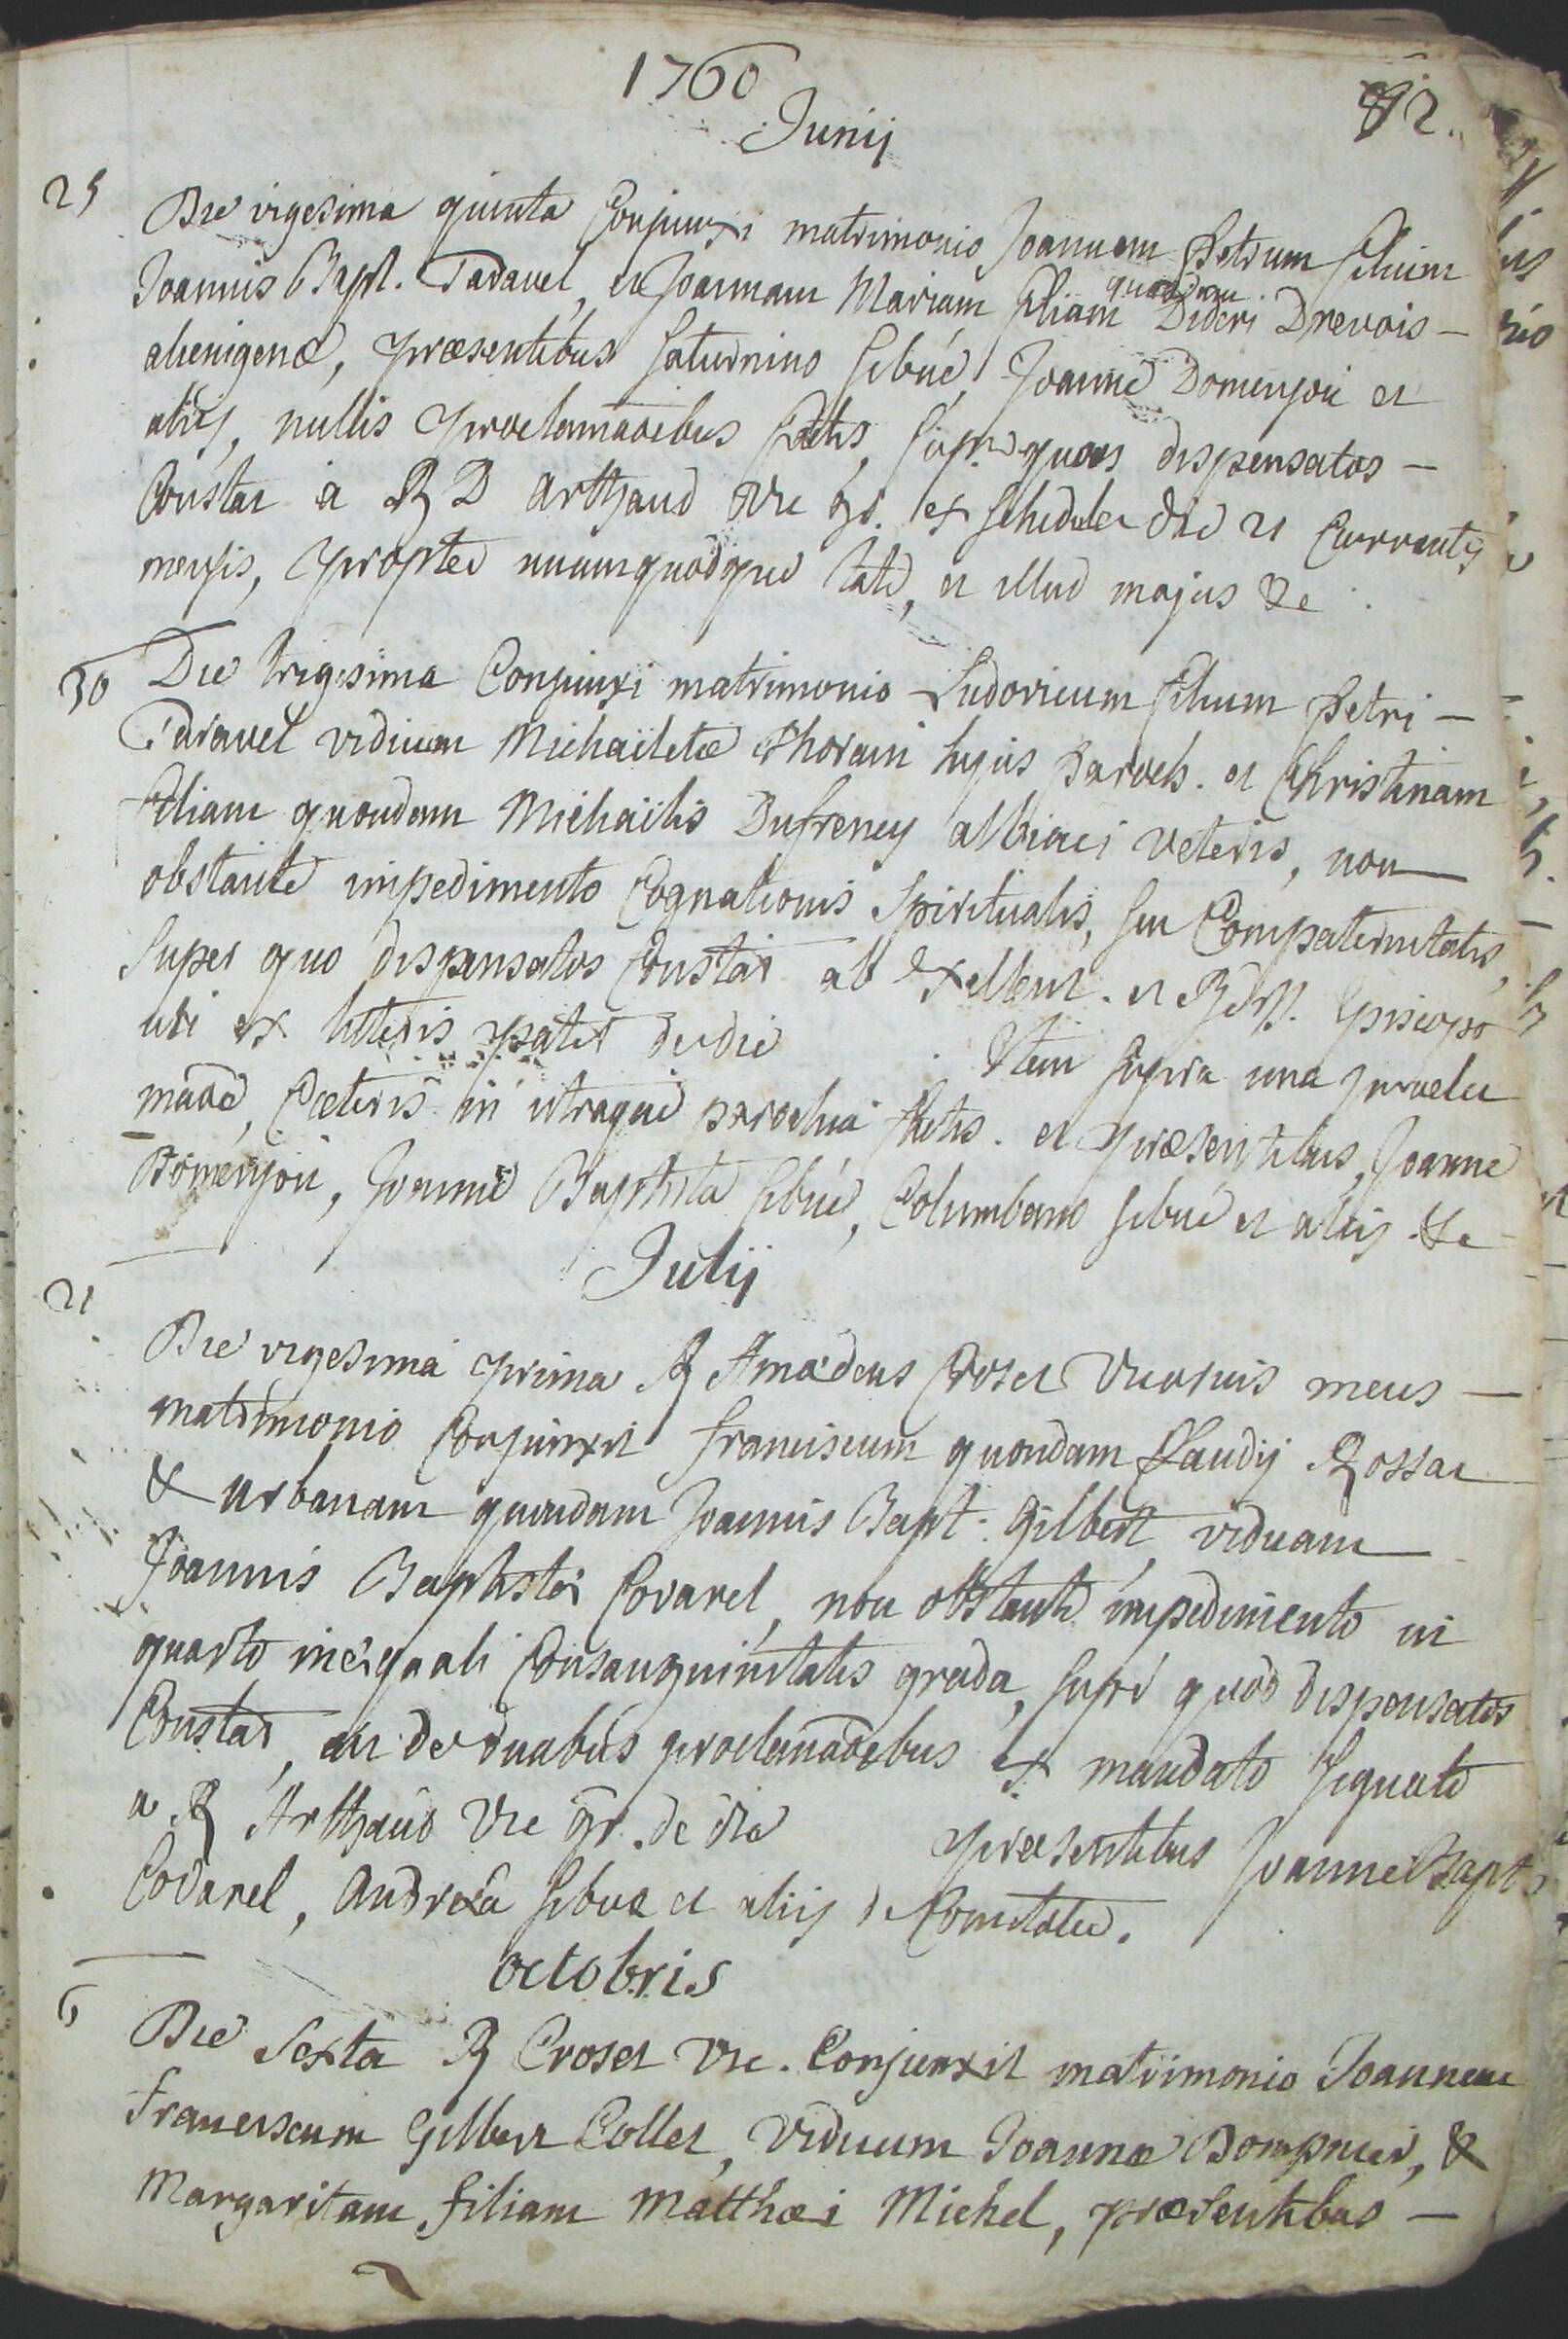 1760
92.
Junij
25
Die vigesima quinta Conjunxi matrimonio Joannem Petrum filium
Joannis Bapt. Taravel, et Joannam Mariam filiam quondam Dideri Drevois —
alienigenæ, præsentibus Saturnino Sibué, Joanne Domenjoü et
alijs, nullis proclamaōēibus factis, sup. quas dispensatos —
Constat à R D Arthaud Vic gs. ex schedula die 21 Currentis
mensis, propter unumquodque latē, et illud majus &c
30
Die trigesima Conjunxi matrimonio Ludovicum filium Petri —
Taravel viduum Michaëletæ Thorain hujus Paroch. et Christinam
filiam quondam Michaëlis Dufreney albiaci veteris, non
obstante impedimento Cognationis Spiritualis, seu Compaternitatis,
super quo dispensatos Constat ab Exellent. et R. Episcopo
uti ex litteris patet de die Item supra una procla
māōē, Cæteris in utraque parochia factis. et præsentibus, Joanne
Domenjoü, Joanne Baptista Sibué, Columbano Sibué et alijs &c
Julij
21
Die vigesima prima R Amædeus Croset Vicarius meus —
matrimonio Conjunxit Franciscum quondam Claudij Rossat
& Urbanam quondam Joannis Bapt. Gilbert, viduam
Joannis Baptistæ Covarel, non obstante impedimento in
quarto inæquali Consanguinitatis gradu, supr quod dispensatos
Constat, ac de duabus proclamāōēibus ex mandato signato
a R Arthaud Vic gr. de die præsentibus Joanne Bapt.
Covarel, Andrea Sibué et alijs de Comitatu.
octobris
6
Die Sexta R Croset Vic. Conjunxit matrimonio Joannem
Franciscum Gilbert Collet, Viduum Joannæ Bompnier, &
Margaritam filiam Matthæi Michel, præsentibus —